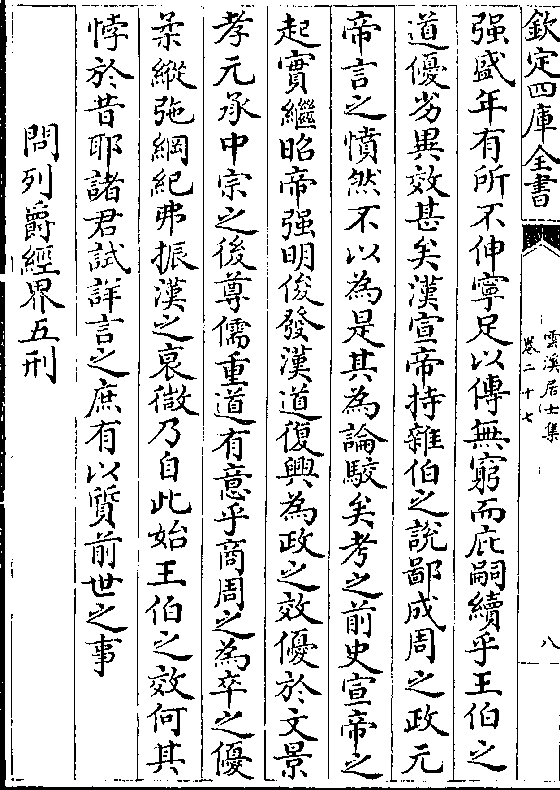 欽定四庫全書
雲溪居士集
卷二十七
八
强盛年有所不伸寧足以傳無窮而庇嗣續乎王伯之
道優劣異效甚矣漢宣帝持雜伯之說鄙成周之政元
帝言之憤然不以為是其為論駮矣考之前史宣帝之
起實繼昭帝强明俊發漢道復興為政之效優於文景
孝元承中宗之後尊儒重道有意乎商周之為卒之優
柔縱弛綱紀弗振漢之衰微乃自此始王伯之效何其
悖於昔耶諸君試詳言之庶有以質前世之事
問列爵經界五刑